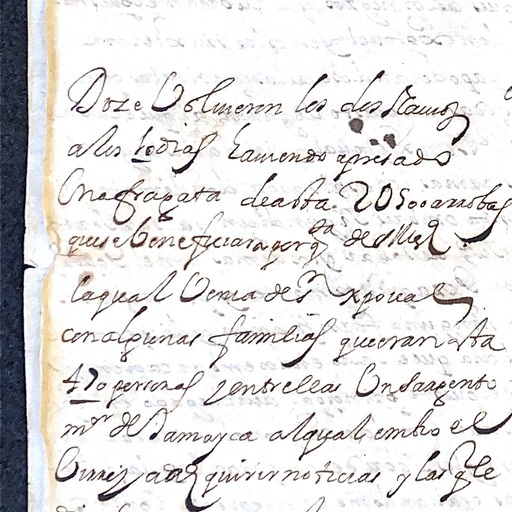 Doze Volvieron los dos Navios
a los 10 dias haviendo apresado
Una fragata de asta 20500 arrobas
que se beneficiaron por qta de su Mgd
la qual Venia de Sn Xpoval
con algunas familias que eran asta
470 personas y entre ellas Un sargento
mor de Jamayca al qual embio el
Virrey a adquirir noticias y las q le